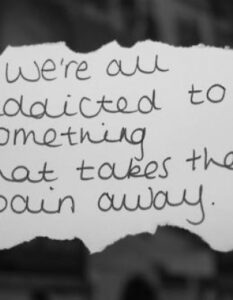 we're all
addicted to
something
that takes the
pain away.